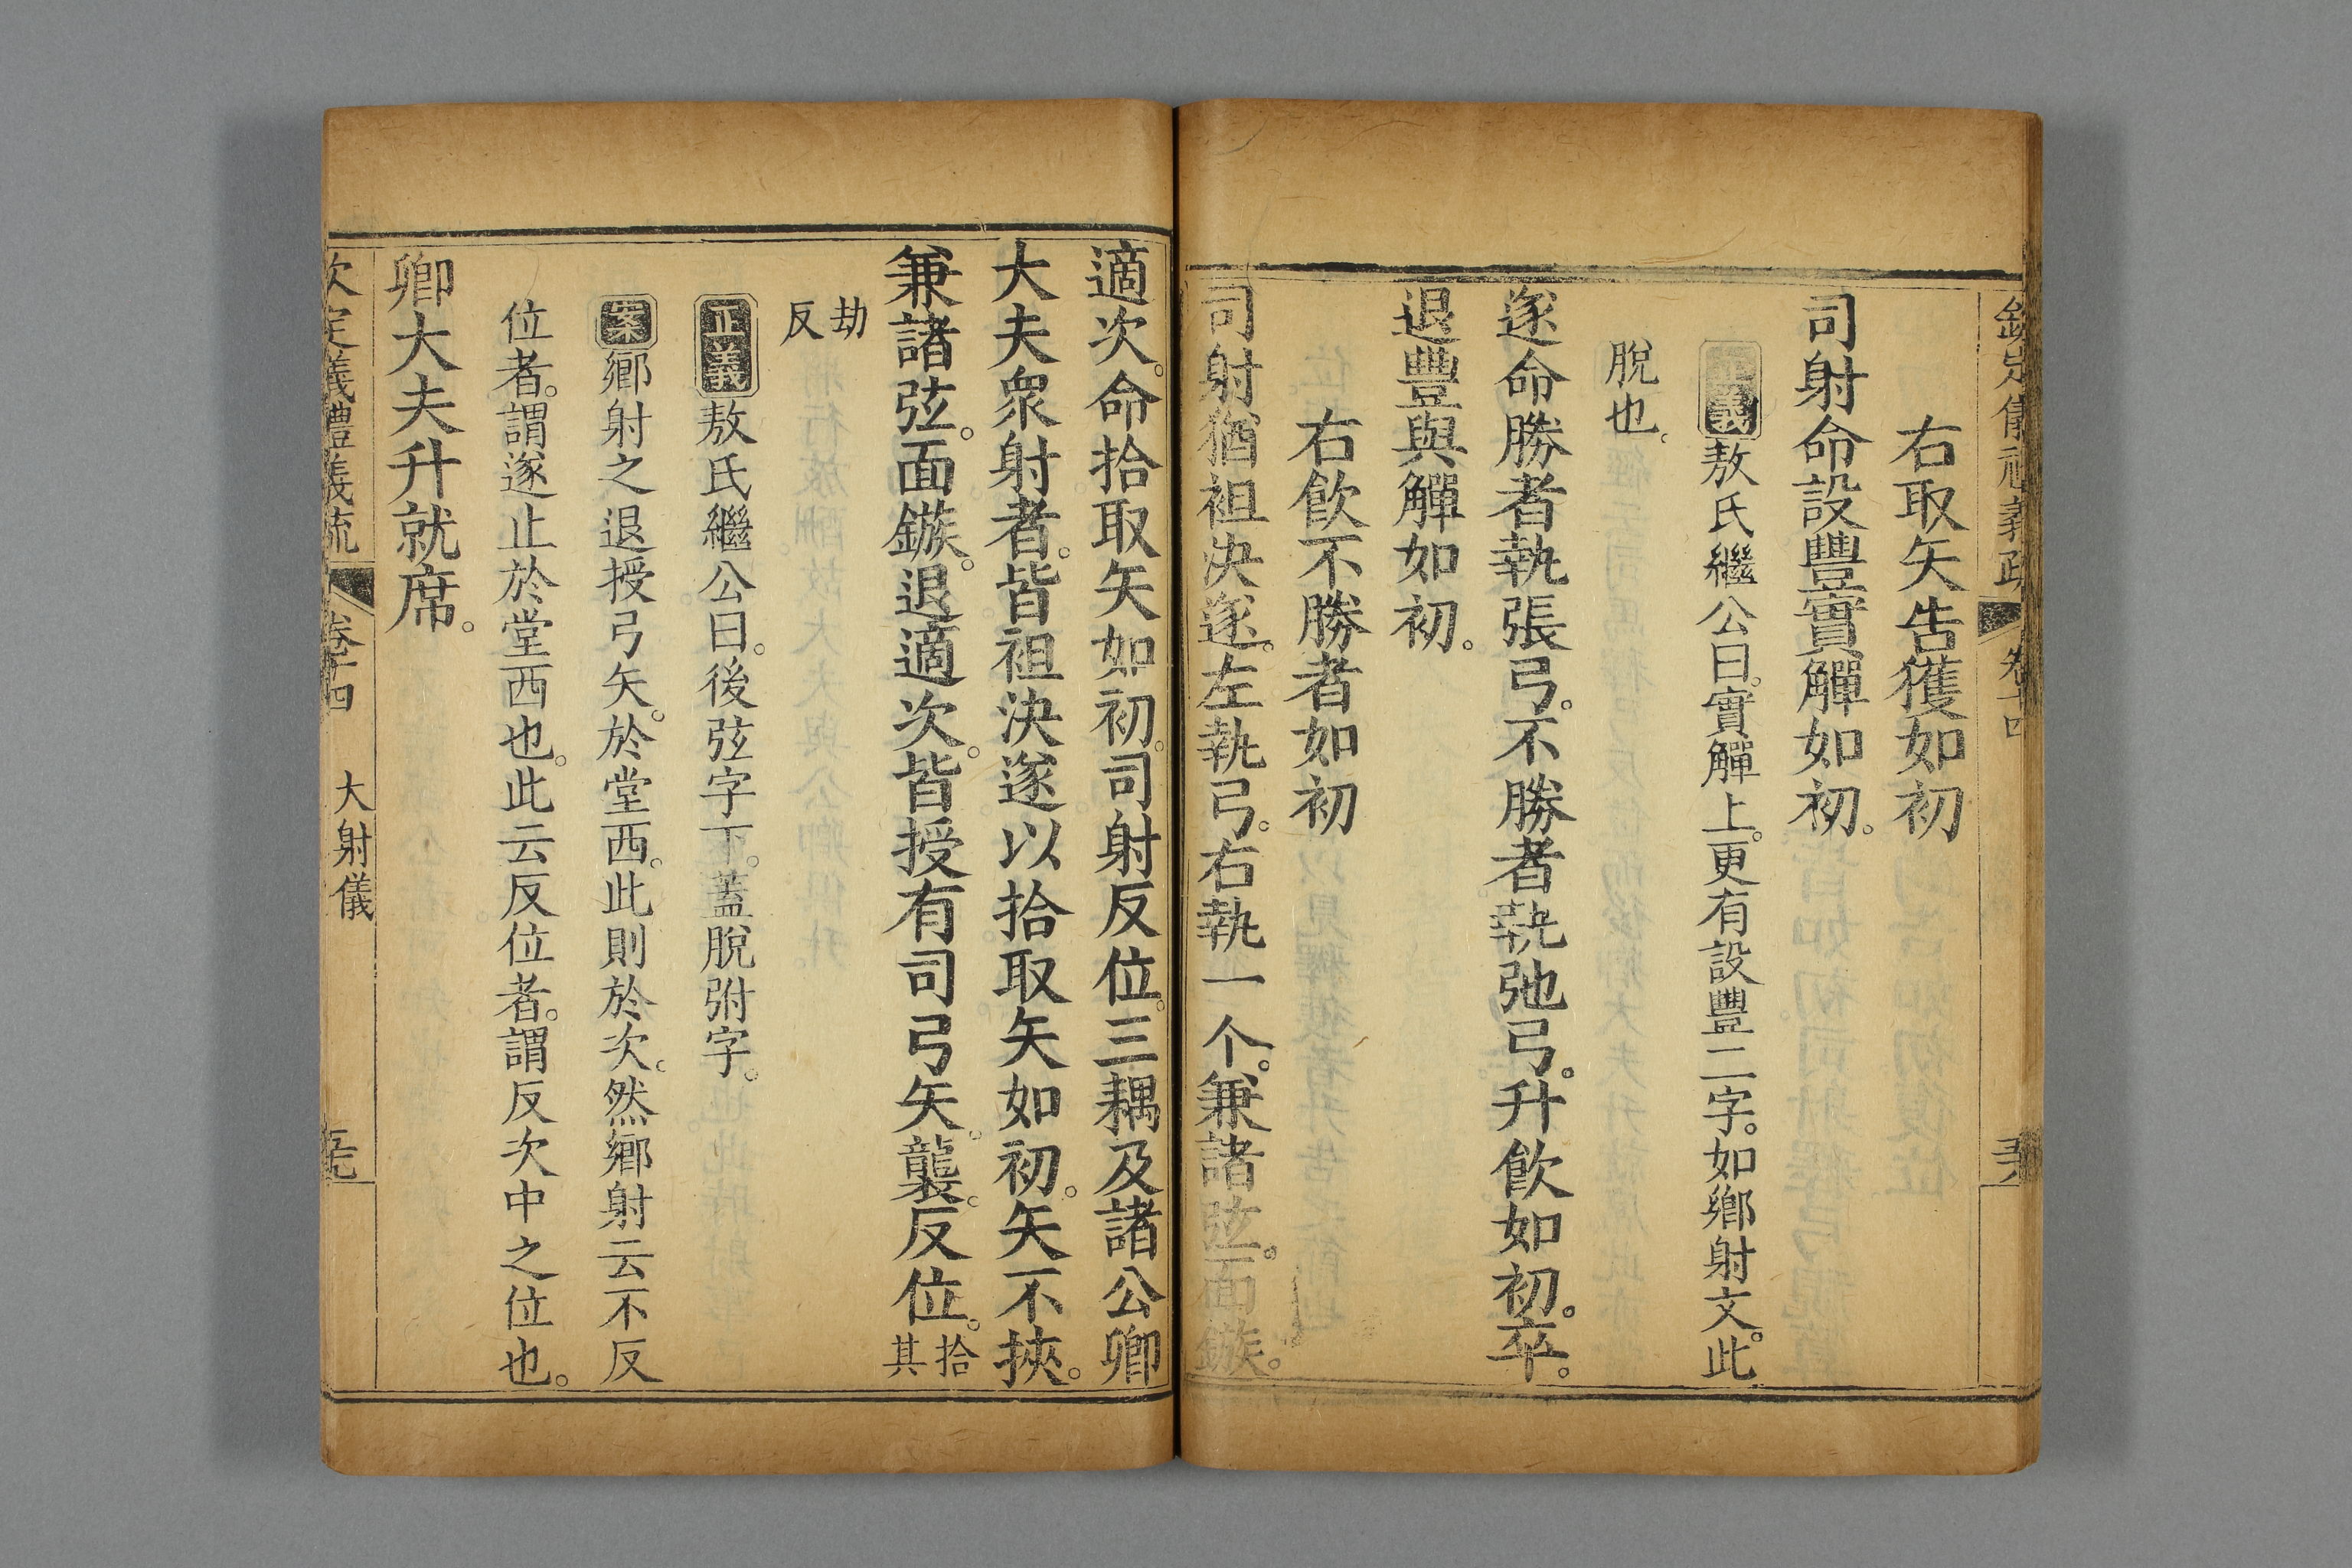 欽定儀禮義疏 卷十四
右取矢告獲如初
司射命設豐實觶如初。
正義敖氏繼公曰。實觶上。更有設豐二字。如鄉射文。此
脫也。
遂命勝者執張弓。不勝者執弛弓。升飲如初。卒。
退豐與觶如初。
右飲不勝者如初
司射猶袒决遂。左執弓。右執一个。兼諸弦。面鏃。
適次。命拾取矢如初。司射反位。三耦及諸公卿
大夫衆射者。皆袒決遂以拾取矢如初。矢不挾。
兼諸弦。面鏃。退適次。皆授有司弓矢。襲。反位。拾其
劫反
正義敖氏繼公曰。後弦字下。蓋脫弣字。
案鄉射之退授弓矢。於堂西。此則於次。然鄉射云不反
位者。謂遂止於堂西也。此云反位者。謂反次中之位也。
卿大夫升就席。
欽定義禮義疏 卷十四 大射儀